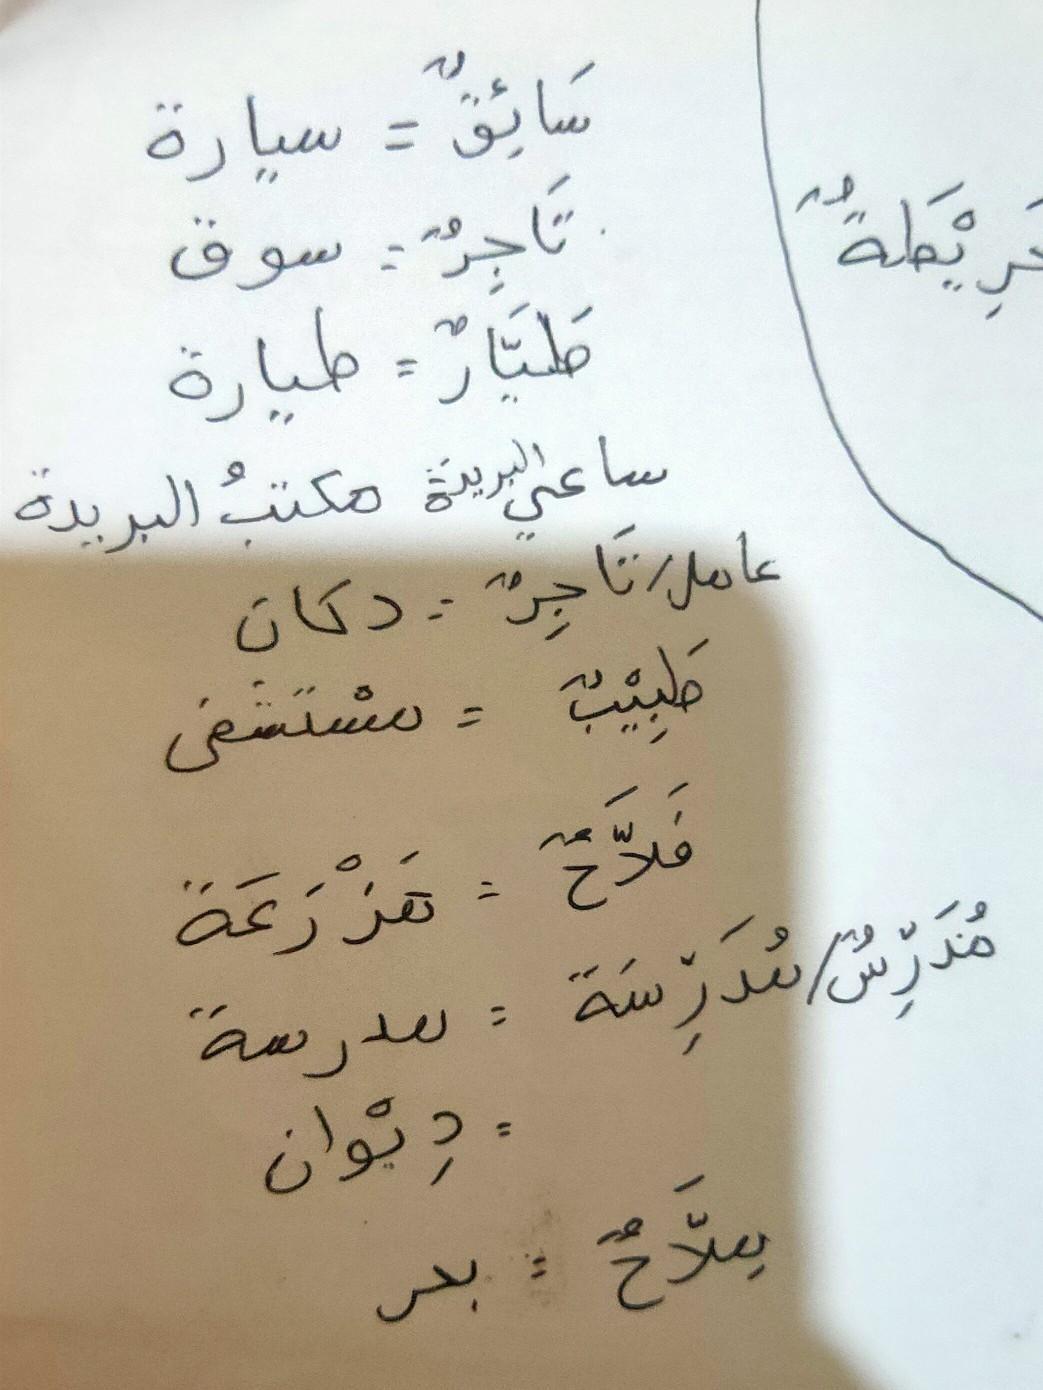 سَائِقٌ = سيارة
تَاجِرٌ = سوق
طَيَّارٌ = طيارة
ساعي البريدة مكتبُ البريدة
عامل/تَاجِرٌ = دكان
طَبِيْبٌ = مسْتشفى
فَلَّاحٌ = مَزْرَعَة
مُدَرِّسٌ/مُدَرِّسَة = مدرسة
= دِيْوان
مِلَّاحٌ = بحر
خَرِيْطَةٌ